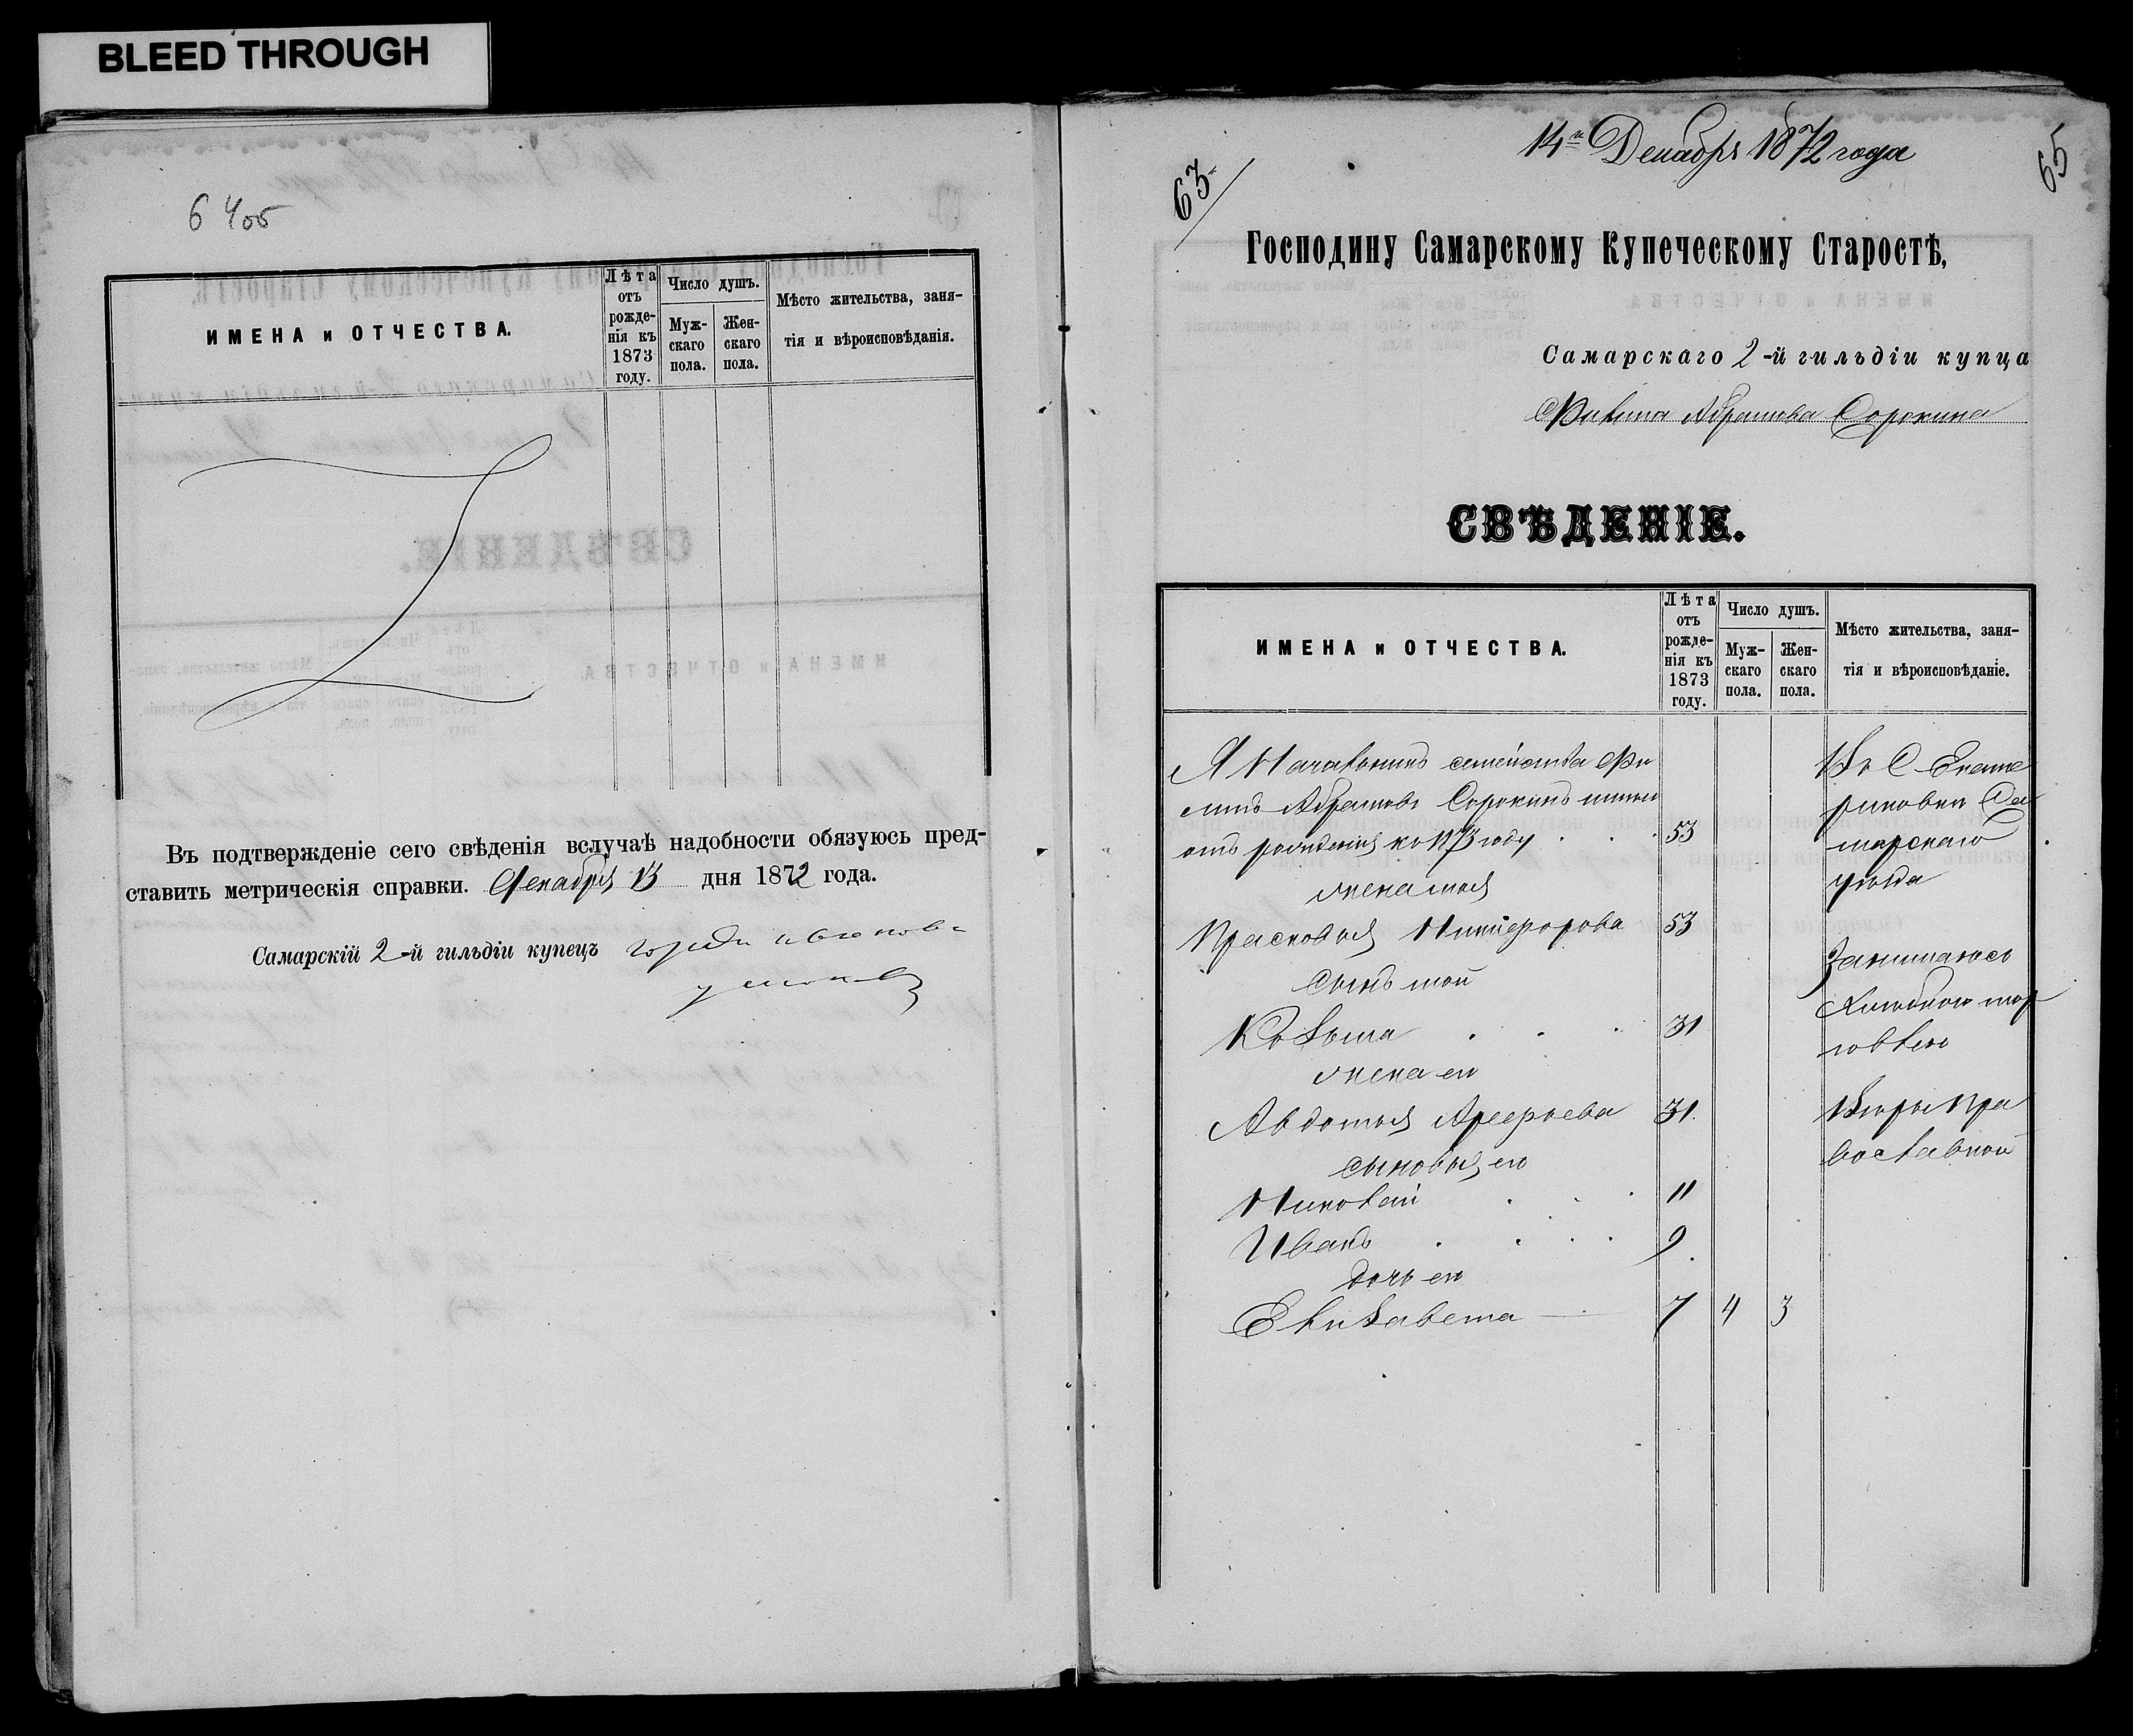 BLEED THROUGH
6 4об
ИМЕНА и ОТЧЕСТВА.
Лѣта отъ рожденія къ 1873 году.
Число душъ.
Мужскаго пола.
Женскаго пола.
Мѣсто жительства, занятія и вѣроисповѣданія.
Въ подтвержденіе сего свѣденія вслучаѣ надобности обязуюсь пред-
ставить метрическія справки. Декабря 13 дня 1872 года.
Самарскій 2-й гильдіи купецъ
14го Декабря 1872 года
63
65
Господину Самарскому Купеческому Старостѣ,
Самарскаго 2-й гильдіи купца
Филипа Абрамова Сорокина
СВѢДЕНІЕ.
ИМЕНА и ОТЧЕСТВА.
Лѣта отъ рожденія къ 1873 году.
Число душъ.
Мужскаго пола.
Женскаго пола.
Мѣсто жительства, занятія и вѣроисповѣданіе.
Я Начальникъ семейства Фи
липъ Абрамовъ Сорокинъ
отъ рожденія къ 1873 году 53
жена моя
Прасковья Никифорова 53
сынъ мой
Козьма 31
жена его
Авдотья Арефьева 31.
сыновья его
Николай 11
Иванъ 9
дочь его
Елизавета 7 4 3
Въ С Екате
риновки Са
марскаго
уѣзда
Занимаюсь
Хлѣбною тор
говлею
Вѣры пра
вославной